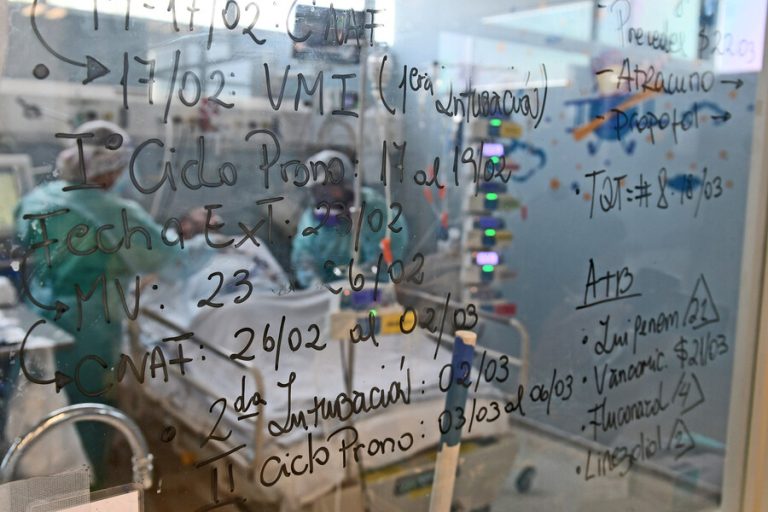 11-17/02: CNAF
17/02: VMI (1era Intubación)
I° Ciclo Prono: 17 al 19/02
Fecha Ext: 23/02
MV: 23 26/02
CNAF: 26/02 al 02/03
2da Intubación: 02/03
II Ciclo Prono: 03/03 al 06/03
$22.03
- Atracurio →
- Propofol →
• TQT = # 8 - 18/03
ATB
• Imipenem 21
• Vancomic. $ 21/03
• Fluconazol 4
• Linezolid 2